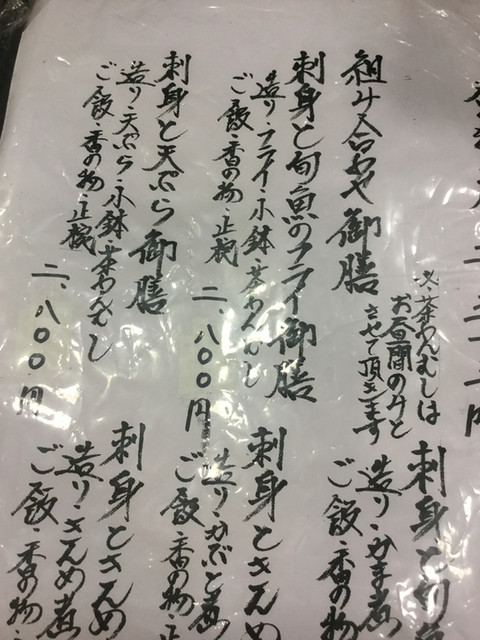 組み合わせ御膳
※茶わんむしは
お昼間のみと
させて頂きます
刺身と旬魚のフライ御膳
造り・フライ・小鉢・茶わんむし
ご飯・香の物・止椀
二、八〇〇円
刺身と天ぷら御膳
造り・天ぷら・小鉢・茶わんむし
ご飯・香の物・止椀
二、八〇〇円
刺身と
造り・かま煮
ご飯・香の物
刺身とさんめ
造り・かぶと煮
ご飯・香の物・止
刺身とさんめ
造り・さんめ煮
ご飯・香の物